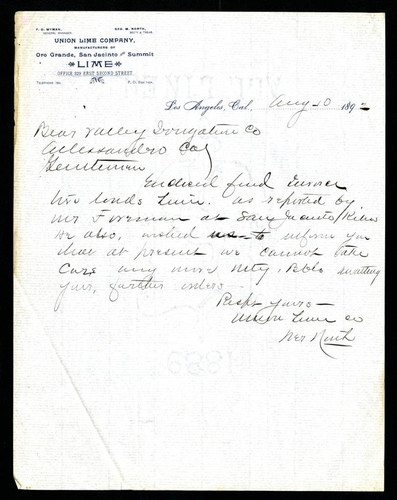 F. C. WYMAN, GEO. M. NORTH,
UNION LIME COMPANY,
MANUFACTURERS OF
Oro Grande, San Jacinto and Summit
LIME
OFFICE, EAST SECOND STREET.
Los Angeles Cal, Aug 10 189
Bear Valley Irrigation Co
Allessandro Cal
Gentlemen
Enclosed find Invoice
two loads Lime. as reported by
Mr Foreman at San Jacinto Kilns
He also, wished us to inform you
that at present we cannot take
care any more Bbls awaiting
your further orders
Respt yours
Union Lime Co
Per North